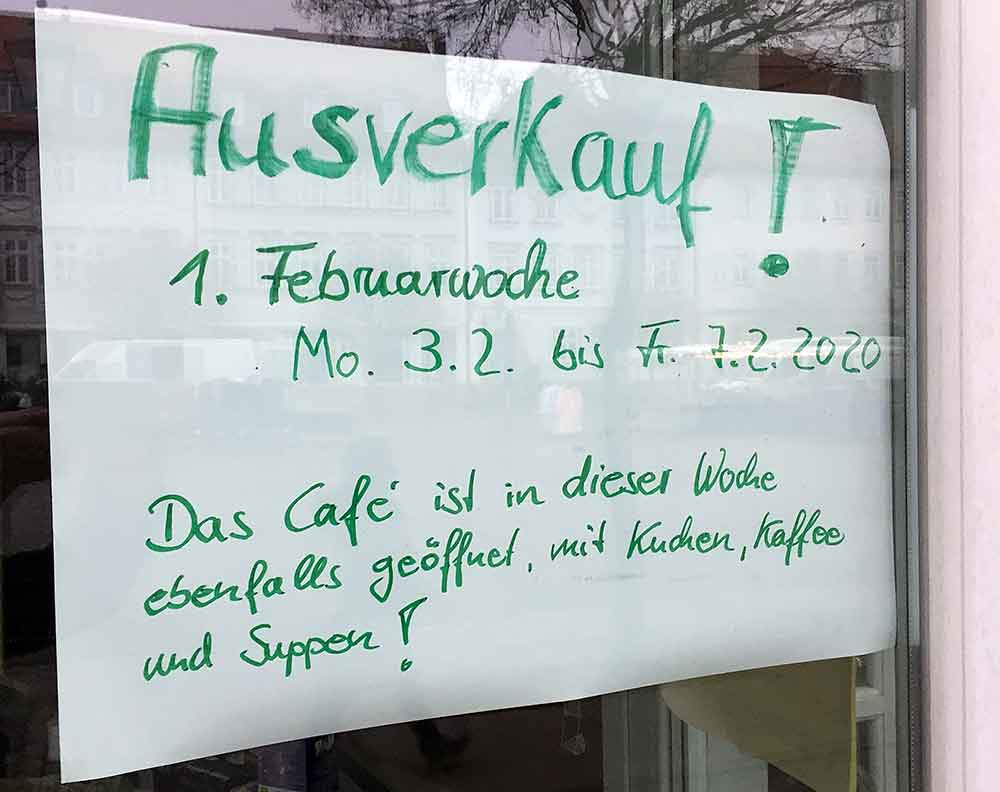 Ausverkauf!
1. Februarwoche
Mo. 3.2. bis Fr. 7.2.2020
Das Café ist in dieser Woche
ebenfalls geöffnet, mit Kuchen, Kaffee
und Suppen!